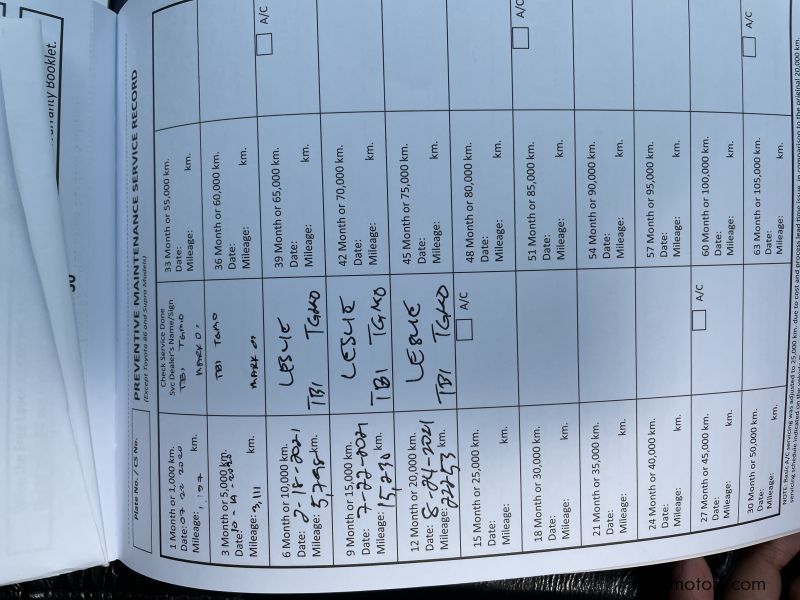 Warranty Booklet.
Plate No. / CS No.
PREVENTIVE MAINTENANCE SERVICE RECORD
(Except Toyota 86 and Supra Models)
1 Month or 1,000 km.
Date: 07 22 2020
Mileage: km.
Check Service Done
Svc Dealer's Name/Sign
TBI TGMO
MARK O.
3 Month or 5,000 km.
Date:
Mileage: 3,111 km.
TBI TGMO
MARK O.
6 Month or 10,000 km.
Date: 2-18-2021
Mileage: 5,798 km.
LESLIE
TBI TGMO
9 Month or 15,000 km.
Date: 7-22-2021
Mileage: 15,230 km.
LESLIE
TBI TGMO
12 Month or 20,000 km.
Date: 8-24-2021
Mileage: 22253 km.
LESLIE
TBI TGMO
15 Month or 25,000 km.
Date:
Mileage: km.
A/C
18 Month or 30,000 km.
Date:
Mileage: km.
21 Month or 35,000 km.
Date:
Mileage: km.
24 Month or 40,000 km.
Date:
Mileage: km.
27 Month or 45,000 km.
Date:
Mileage: km.
A/C
30 Month or 50,000 km.
Date:
Mileage: km.
33 Month or 55,000 km.
Date:
Mileage: km.
36 Month or 60,000 km.
Date:
Mileage: km.
39 Month or 65,000 km.
Date:
Mileage: km.
A/C
42 Month or 70,000 km.
Date:
Mileage: km.
45 Month or 75,000 km.
Date:
Mileage: km.
48 Month or 80,000 km.
Date:
Mileage: km.
51 Month or 85,000 km.
Date:
Mileage: km.
A/C
54 Month or 90,000 km.
Date:
Mileage: km.
57 Month or 95,000 km.
Date:
Mileage: km.
60 Month or 100,000 km.
Date:
Mileage: km.
63 Month or 105,000 km.
Date:
Mileage: km.
A/C
NOTE: Basic A/C servicing was adjusted to 25,000 km. due to cost and process lead time issue, in comparison to the original 20,000 km.
servicing schedule indicated on the